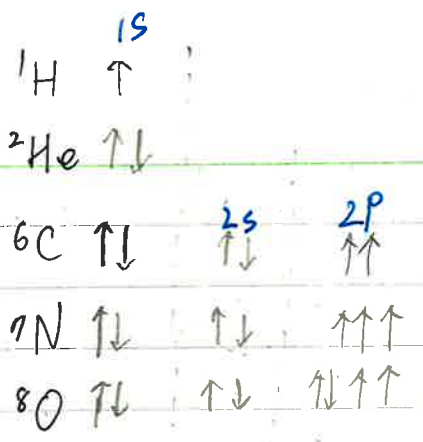 1S
¹H ↑
²He ↑↓
2s 2P
⁶C ↑↓ ↑↓ ↑↑
⁷N ↑↓ ↑↓ ↑↑↑
⁸O ↑↓ ↑↓ ↑↓↑↑